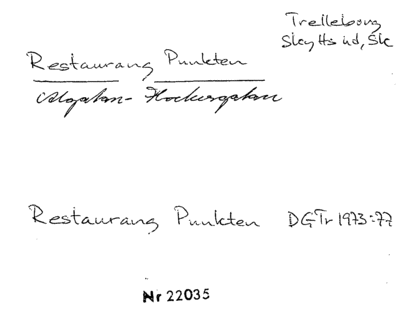 Trelleborg
Skytts hd, Sk
Restaurang Punkten
Algatan-
Restaurang Punkten DGTr 1973:77
Nr 22035